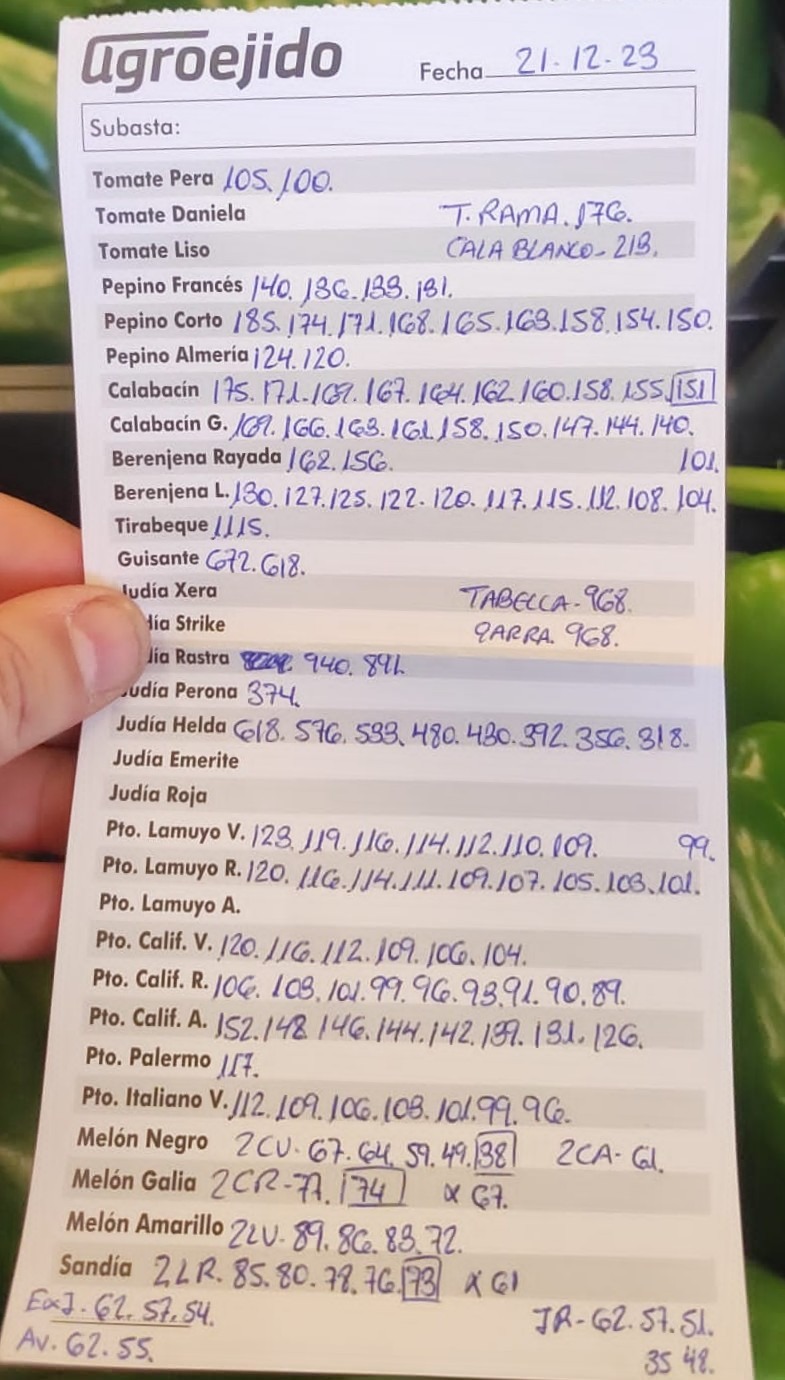 agroejido
Fecha 21-12-23
Subasta:
Tomate Pera 105. 100.
Tomate Daniela T. RAMA. 176.
Tomate Liso CALABLANCO - 213.
Pepino Francés 140. 136. 133. 131.
Pepino Corto 185. 174. 171. 168. 165. 163. 158. 154. 150.
Pepino Almería 124. 120.
Calabacín 175. 171. 169. 167. 164. 162. 160. 158. 155. 151
Calabacín G. 169. 166. 163. 161. 158. 150. 147. 144. 140.
Berenjena Rayada 162. 156. 101.
Berenjena L. 130. 127. 125. 122. 120. 117. 115. 112. 108. 104.
Tirabeque 1115.
Guisante 672. 618.
Judía Xera TABELLA - 968.
día Strike GARRA. 968.
ía Rastra 940. 891.
udía Perona 374.
Judía Helda 618. 576. 533. 480. 430. 392. 356. 318.
Judía Emerite
Judía Roja
Pto. Lamuyo V. 123. 119. 116. 114. 112. 110. 109. 99.
Pto. Lamuyo R. 120. 116. 114. 111. 109. 107. 105. 103. 101.
Pto. Lamuyo A.
Pto. Calif. V. 120. 116. 112. 109. 106. 104.
Pto. Calif. R. 106. 103. 101. 99. 96. 93. 91. 90. 89.
Pto. Calif. A. 152. 148. 146. 144. 142. 139. 131. 126.
Pto. Palermo 117.
Pto. Italiano V. 112. 109. 106. 103. 101. 99. 96.
Melón Negro 2CV. 67. 64. 59. 49. 38 2CA - 61.
Melón Galia 2CR - 77. 74 x 67.
Melón Amarillo 2LV - 89. 86. 83. 72.
Sandía 2LR. 85. 80. 78. 76. 73 x 61
ExJ. 62. 57. 54. JR - 62. 57. 51.
Av. 62. 55. 35 48.